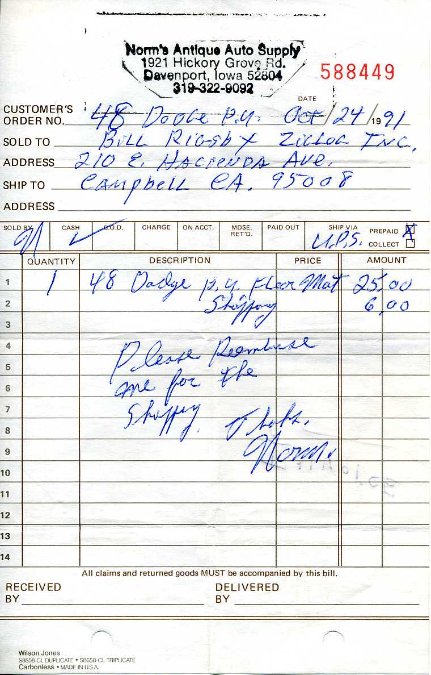 Norm's Antique Auto Supply
1921 Hickory Grove Rd.
Davenport, Iowa 52804
319-322-9092
588449
DATE
CUSTOMER'S ORDER NO. 48 Dodge P.U. Oct/24/1991
SOLD TO Bill Rigsby Zicloc Inc.
ADDRESS 210 E. Hacienda Ave.
SHIP TO Campbell CA. 95008
ADDRESS
SOLD BY CASH ✓ C.O.D. CHARGE ON ACCT. MDSE. RET'D. PAID OUT SHIP VIA U.P.S. PREPAID X
COLLECT
QUANTITY DESCRIPTION PRICE AMOUNT
1 1 48 Dodge P.U. Floor Mat 25.00
2 Shipping 6.00
3
4 Please Reembuse
5 me for the
6
7 Shipping. Thaks.
8 Norm.
9
10
11
12
13
14
All claims and returned goods MUST be accompanied by this bill.
RECEIVED BY DELIVERED BY
Wilson Jones
S8656 CL DUPLICATE • S8658 CL TRIPLICATE
Carbonless • MADE IN U.S.A.